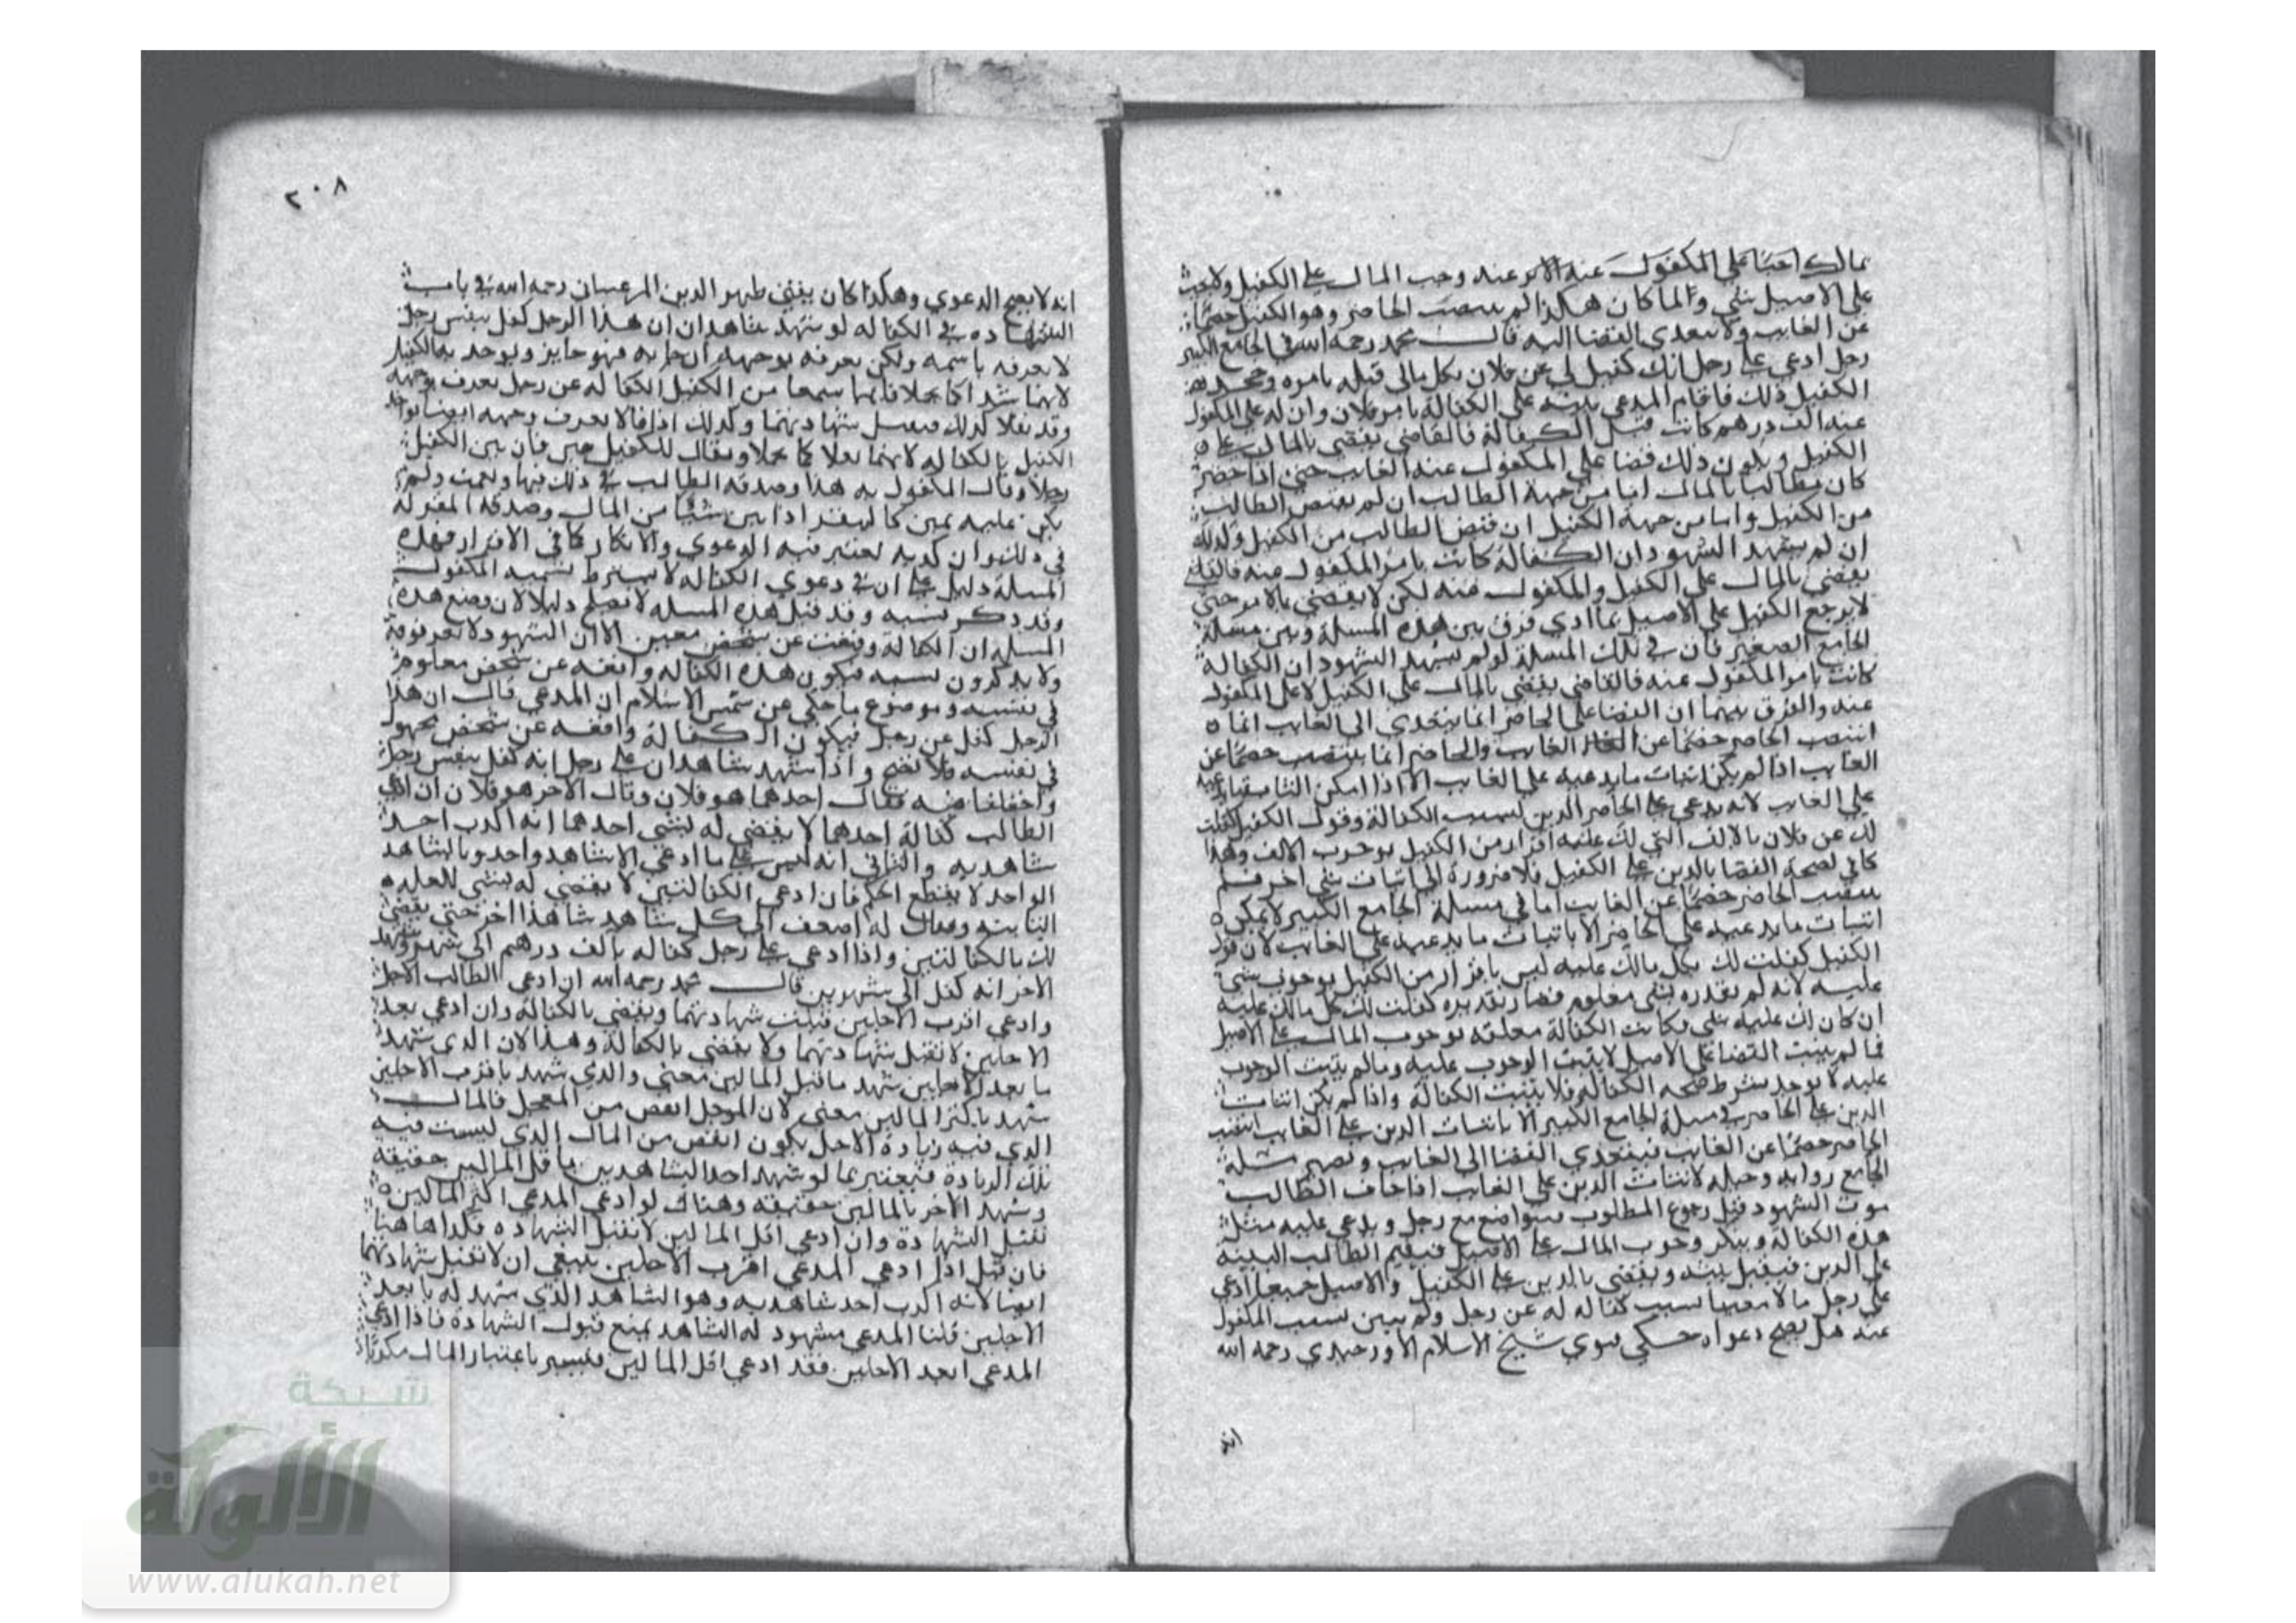 على المكفول عنه الامر عنه وجب المال على الكفيل ولا يجب
على الاصيل شي وانما كان هكذا لم ينتصب الحاضر وهو الكفيل خصما
عن الغايب ولا يتعدى القضا اليه قال محمد رحمه الله في الجامع الكبير
رجل ادعى على رجل انك كفيل لي عن فلان بكل مالي قبله بامره وجحد
الكفيل ذلك فاقام المدعي بينة على الكفالة بامر فلان وان له على المكفول
عنه الف درهم كانت قبل الكفالة فالقاضي يقضي بالمال على
الكفيل ويكون ذلك قضا على المكفول عنه الغايب حتى اذا حضر
كان مطالبا بالمال اما من جهة الطالب ان لم يقبض الطالب
من الكفيل واما من جهة الكفيل ان قبض الطالب من الكفيل وكذلك
ان لم يشهد الشهود ان الكفالة كانت بامر المكفول عنه فالقاضي
يقضي بالمال على الكفيل والمكفول عنه لكن لا يقضي بالامر حتى
لا يرجع الكفيل على الاصيل بما ادي فرق بين هذه المسلة وبين مسلة
الجامع الصغير فان في تلك المسلة لو لم يشهد الشهود ان الكفالة
كانت بامر المكفول عنه فالقاضي يقضي بالمال على الكفيل لا على المكفول
عنه والفرق بينهما ان القضا على الحاضر انما يتعدى الى الغايب انما
انتصب الحاضر خصما عن الغايب والحاضر انما ينتصب خصما عن
الغايب اذا لم يكن اثبات ما يدعيه على الغايب الا اذا امكن
على الغايب لانه يدعي على الحاضر الدين بسبب الكفالة وقول الكفيل كفلت
لك عن فلان بالالف التي لك عليه اقرار من الكفيل بوجوب الالف وهذا
كافي لصحة القضا بالدين على الكفيل فلا ضرورة الى اثبات شي اخر فلم
ينتصب الحاضر خصما عن الغايب اما في مسلة الجامع الكبير لا يمكن
اثبات ما يدعيه على الحاضر الا باثبات ما يدعيه على الغايب لان قول
الكفيل كفلت لك بكل مالك عليه ليس باقرار من الكفيل بوجوب شي
عليه لانه لم يقدره بشي معلوم فصار تقديره كفلت لك كل مالك عليه
ان كان لك عليه شي فكانت الكفالة معلقة بوجوب المال على الاصيل
فما لم يثبت القضا على الاصيل لا يثبت الوجوب عليه وما لم يثبت الوجوب
عليه لا يوجد شرط صحة الكفالة فلا يثبت الكفالة واذا لم يكن اثبات
الدين على الحاضر في مسلة الجامع الكبير الا باثبات الدين على الغايب انتصب
الحاضر خصما عن الغايب فيتعدى القضا الى الغايب وتصير مسلة
الجامع رواية وحيلة لاثبات الدين على الغايب اذا خاف الطالب
موت الشهود قبل رجوع المطلوب فيتواضع مع رجل ويدعي عليه مثل
هذه الكفالة وينكر وجوب المال على الاصيل فيقيم الطالب البينة
على الدين فيقبل بينته ويقضي بالدين على الكفيل والاصيل جميعا ادعى
على رجل مالا معينا بسبب كفالة له عن رجل ولم يبين نسب المكفول
عنه هل يصح دعواه حكي فتوي شيخ الاسلام الاوزجندي رحمه الله
انه
٢٠٨
انه لا يصح الدعوي وهكذا كان يفتي ظهير الدين المرغيناني رحمه الله في باب
الشهادة في الكفالة لو شهد شاهدان ان هذا الرجل كفل بنفس رجل
لا نعرفه باسمه ولكن نعرفه بوجهه ان جا به فهو جايز ويوخذ به الكفيل
لانهما شهدا كما تحملا فانهما سمعا من الكفيل الكفالة عن رجل يعرف بوجهه
وقد نقلا كذلك فيقبل شهادتهما وكذلك اذا قالا لا نعرف وجهه ايضا يواخذ
الكفيل بالكفالة لانهما نقلا كما تحملا ويقال للكفيل بين فان بين الكفيل
رجلا وقال المكفول به هذا وصدقه الطالب في ذلك فبها ونعمت ولم
يكن عليه يمين كالمقر اذا بين شيا من المال وصدقه المقر له
في ذلك وان كذبه يعتبر فيه الدعوي والانكار كما في الاقرار فهذه
المسلة دليل على ان في دعوي الكفالة لا يشترط تسمية المكفول
وقد ذكر نسبه وقد قيل هذه المسلة لا تصلح دليلا لان وضع هذه
المسلة ان الكفالة وقعت عن شخص معين الا ان الشهود لا يعرفونه
ولا يذكرون نسبه فيكون هذه الكفالة واقعة عن شخص معلوم
في نفسه وموضوع ما حكي عن شمس الاسلام ان المدعي قال ان هذا
الرجل كفل عن رجل فيكون الكفالة واقعة عن شخص مجهول
في نفسه فلا تصح واذا شهد شاهدان على رجل انه كفل بنفس رجل
واختلفا فيه فقال احدهما هو فلان وقال الاخر هو فلان ان ادعى
الطالب كفالة احدهما لا يقضي له بشي احدهما انه اكذب احد
شاهديه والثاني انه ليس على ما ادعي الا شاهد واحد وبالشاهد
الواحد لا يقطع الحكم فان ادعى الكفالتين لا يقضي له بشي للعلة
الثانية ويقال له اضعف الى كل شاهد شاهدا اخر حتى يقضي
لك بالكفالتين واذا ادعي على رجل كفالة بالف درهم الى شهر وشهد
الاخر انه كفل الى شهرين قال محمد رحمه الله ان ادعى الطالب الاجل
وادعى اقرب الاجلين قبلت شهادتهما ويقضي بالكفالة وان ادعى بعد
الاجلين لا تقبل شهادتهما ولا يقضي بالكفالة وهذا لان الذي شهد
بابعد الاجلين شهد باقل المالين معنى والذي شهد باقرب الاجلين
شهد باكثر المالين معنى لان الموجل انقص من المعجل فالمال
الذي فيه زيادة الاجل يكون انقص من المال الذي ليست فيه
تلك الزيادة فيعتبر بما لو شهد احد الشاهدين باقل المالين حقيقة
وشهد الاخر بالمالين حقيقة وهناك لو ادعى المدعي اكثر المالين
تقبل الشهادة وان ادعى اقل المالين لا تقبل الشهادة فكذا هاهنا
فان قيل اذا ادعى المدعي اقرب الاجلين ينبغي ان لا تقبل شهادتهما
ايضا لانه اكذب احد شاهديه وهو الشاهد الذي شهد له بابعد
الاجلين قلنا المدعي مشهود له الشاهد يمنع قبول الشهادة فاذا ادعى
المدعي ابعد الاجلين فقد ادعى اقل المالين فيصير باعتبار المال مكذبا
شبكة
الألوكة
www.alukah.net